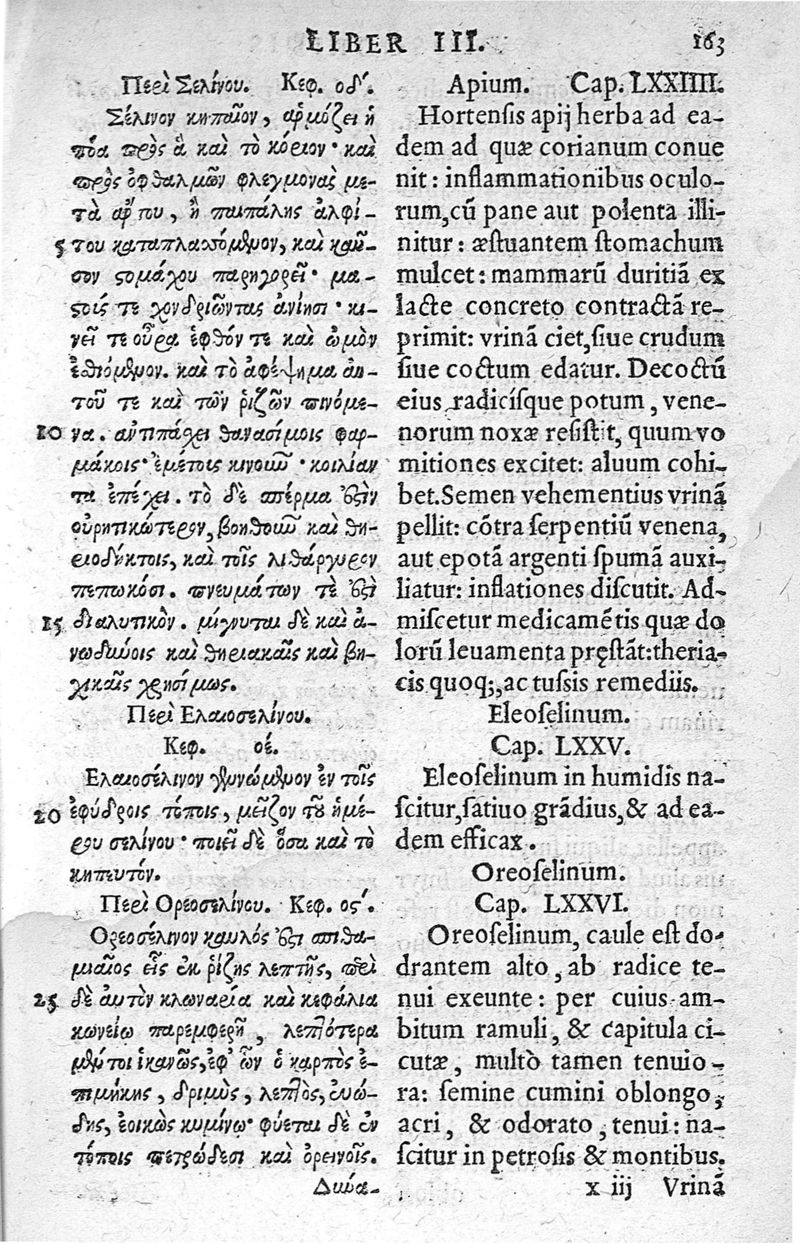 LIBER III. 163
Περὶ Σελίνου. Κεφ. οδ'.
Σέλινον κηπαῖον, ἁρμόζει ἡ
πόα πρὸς ἃ καὶ τὸ κόριον· καὶ
πρὸς ὀφθαλμῶν φλεγμονὰς με-
τὰ ἄρτου, ἢ παιπάλης ἀλφί-
5 του καταπλασσόμενον, καὶ καῦ-
σον στομάχου παρηγορεῖ· μα-
στούς τε χονδριῶντας ἀνίησι· κι-
νεῖ τε οὖρα ἑφθόν τε καὶ ὠμὸν
ἐσθιόμενον. καὶ τὸ ἀφέψημα αὐ-
τοῦ τε καὶ τῶν ῥιζῶν πινόμε-
10 να. ἀντιπάσχει θανασίμοις φαρ-
μάκοις· ἐμέτοις κινοῦν· κοιλίαν
τε ἐπέχει. τὸ δὲ σπέρμα ἐστὶν
οὐρητικώτερον, βοηθοῦν καὶ θη-
ριοδήκτοις, καὶ τοῖς λιθάργυρον
πεπωκόσι. πνευμάτων τέ ἐστι
15 διαλυτικόν. μίγνυται δὲ καὶ ἀ-
νωδύνοις καὶ θηριακαῖς καὶ βη-
χικαῖς χρησίμως.
Περὶ Ἐλαιοσελίνου.
Κεφ. οέ.
Ἐλαιοσέλινον γεννώμενον ἐν τοῖς
20 ἐφύδροις τόποις, μεῖζον τοῦ ἡμέ-
ρου σελίνου· ποιεῖ δὲ ὅσα καὶ τὸ
κηπευτόν.
Περὶ Ὀρεοσελίνου. Κεφ. ος'.
Ὀρεοσέλινον καυλός ἐστι σπιθα-
μιαῖος εἷς ἐκ ῥίζης λεπτῆς, περὶ
25 δὲ αὐτὸν κλωνάρια καὶ κεφάλια
κωνείῳ παρεμφερῆ, λεπτότερα
μέντοι ἱκανῶς, ἐφ' ὧν ὁ καρπὸς ἐ-
πιμήκης, δριμὺς, λεπτὸς, εὐώ-
δης, ἐοικὼς κυμίνῳ· φύεται δὲ ἐν
τόποις πετρώδεσι καὶ ὀρεινοῖς.
Δυνα-
Apium. Cap. LXXIIII.
Hortensis apij herba ad ea-
dem ad quæ corianum conue
nit: inflammationibus oculo-
rum, cũ pane aut polenta illi-
nitur: æstuantem stomachum
mulcet: mammarũ duritiã ex
lacte concreto contractã re-
primit: vrinã ciet, siue crudum
siue coctum edatur. Decoctũ
eius radicisque potum, vene-
norum noxæ resistit, quum vo
mitiones excitet: aluum cohi-
bet. Semen vehementius vrinã
pellit: cõtra serpentiũ venena,
aut epotã argenti spumã auxi-
liatur: inflationes discutit. Ad-
miscetur medicamẽtis quæ do
lorũ leuamenta pręstãt: theria-
cis quoq;, ac tussis remediis.
Eleoselinum.
Cap. LXXV.
Eleoselinum in humidis na-
scitur, satiuo grãdius, & ad ea-
dem efficax.
Oreoselinum.
Cap. LXXVI.
Oreoselinum, caule est do-
drantem alto, ab radice te-
nui exeunte: per cuius am-
bitum ramuli, & capitula ci-
cutæ, multò tamen tenuio-
ra: semine cumini oblongo,
acri, & odorato, tenui: na-
scitur in petrosis & montibus.
x iij Vrinã